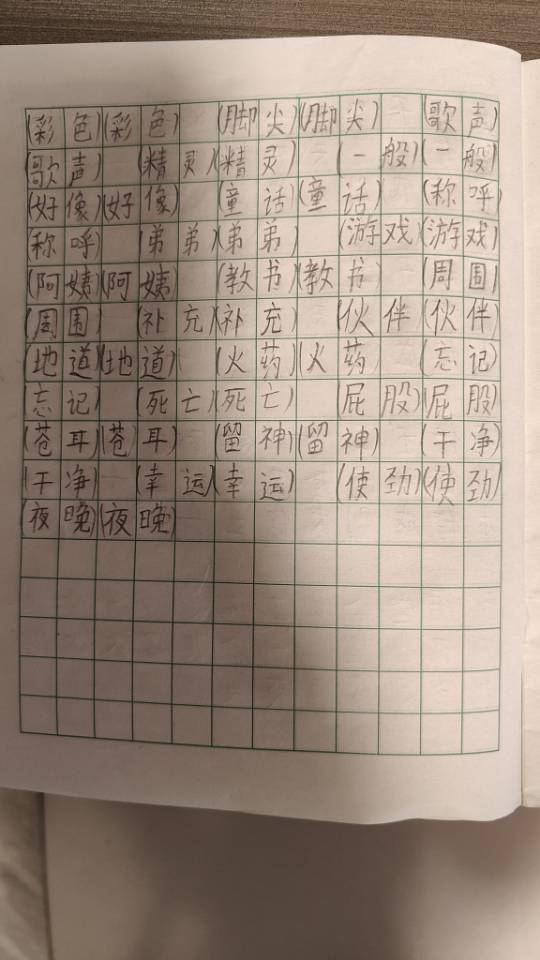 (彩色)(彩色) (脚尖)(脚尖) (歌声)
(歌声) (精灵)(精灵) (一般)(一般)
(好像)(好像) (童话)(童话) (称呼)
(称呼) (弟弟)(弟弟) (游戏)(游戏)
(阿姨)(阿姨) (教书)(教书) (周围)
(周围) (补充)(补充) (伙伴)(伙伴)
(地道)(地道) (火药)(火药) (忘记)
(忘记) (死亡)(死亡) (屁股)(屁股)
(苍耳)(苍耳) (留神)(留神) (干净)
(干净) (幸运)(幸运) (使劲)(使劲)
(夜晚)(夜晚)